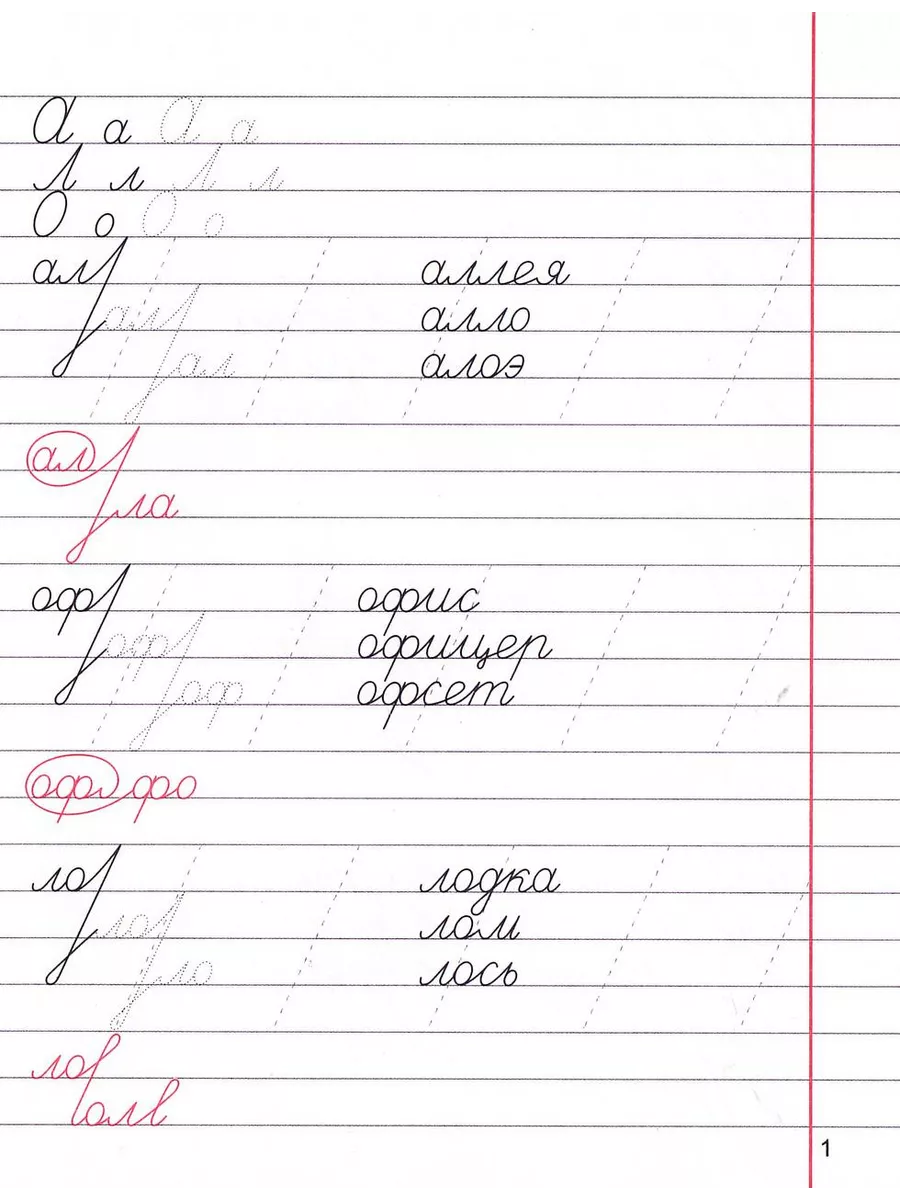 А а А а
Л л Л л
О о О о
ал аллея
ал алло
ал алоэ
ал
ла
оф офис
оф офицер
оф офсет
офл фро
ло лодка
ло лом
ло лось
лов
олв
1